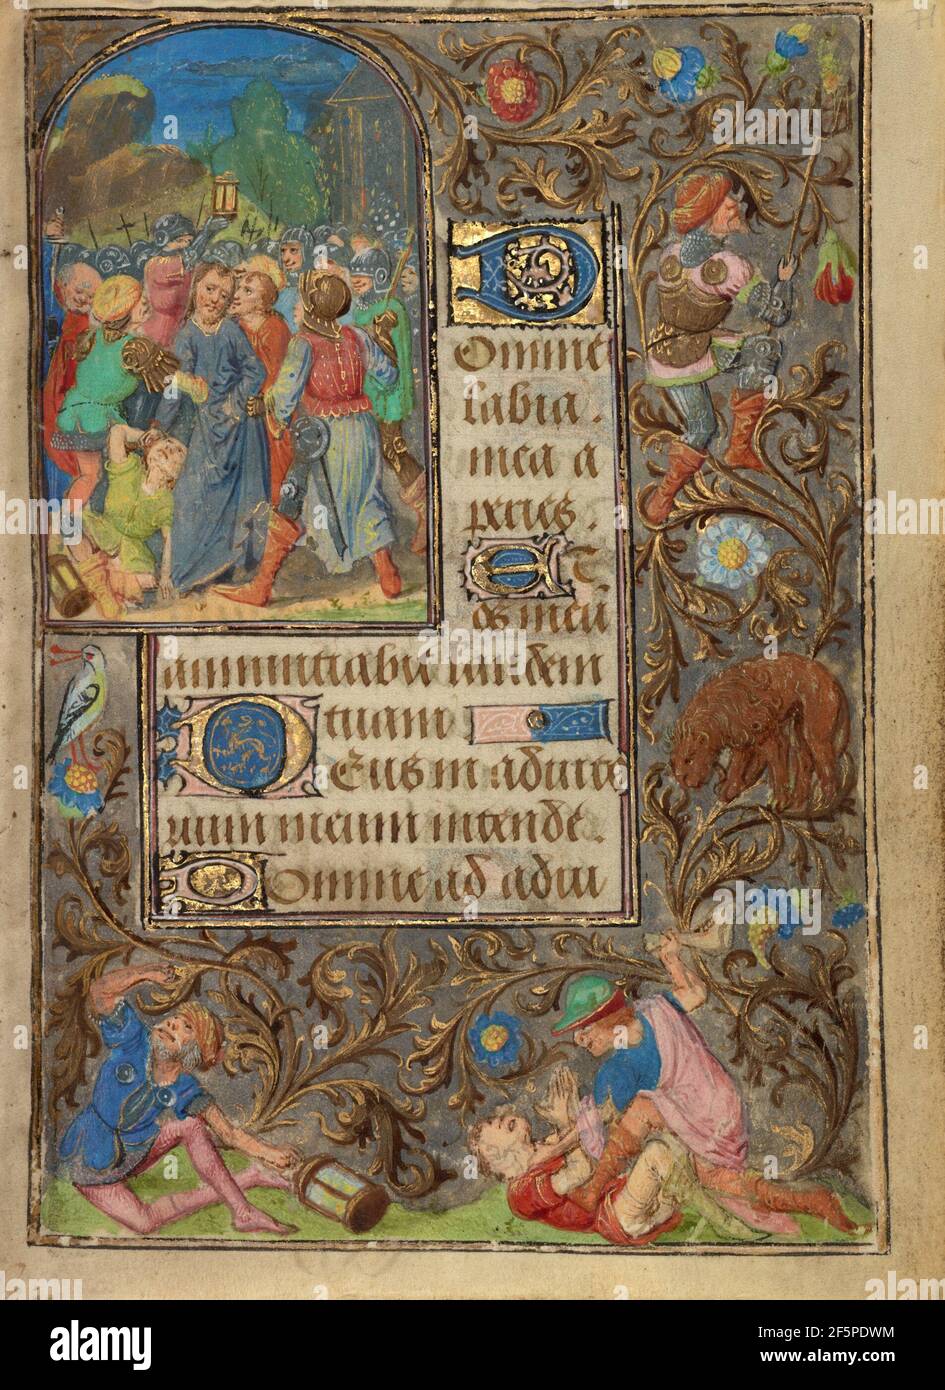 Domine
labia .
mea a
peries .
Et
os meu
annunciabit laudem
tuam
Deus in adiuto
rium meum intende .
Domine ad adiu
alamy
Image ID: 2F5PDWM
www.alamy.com